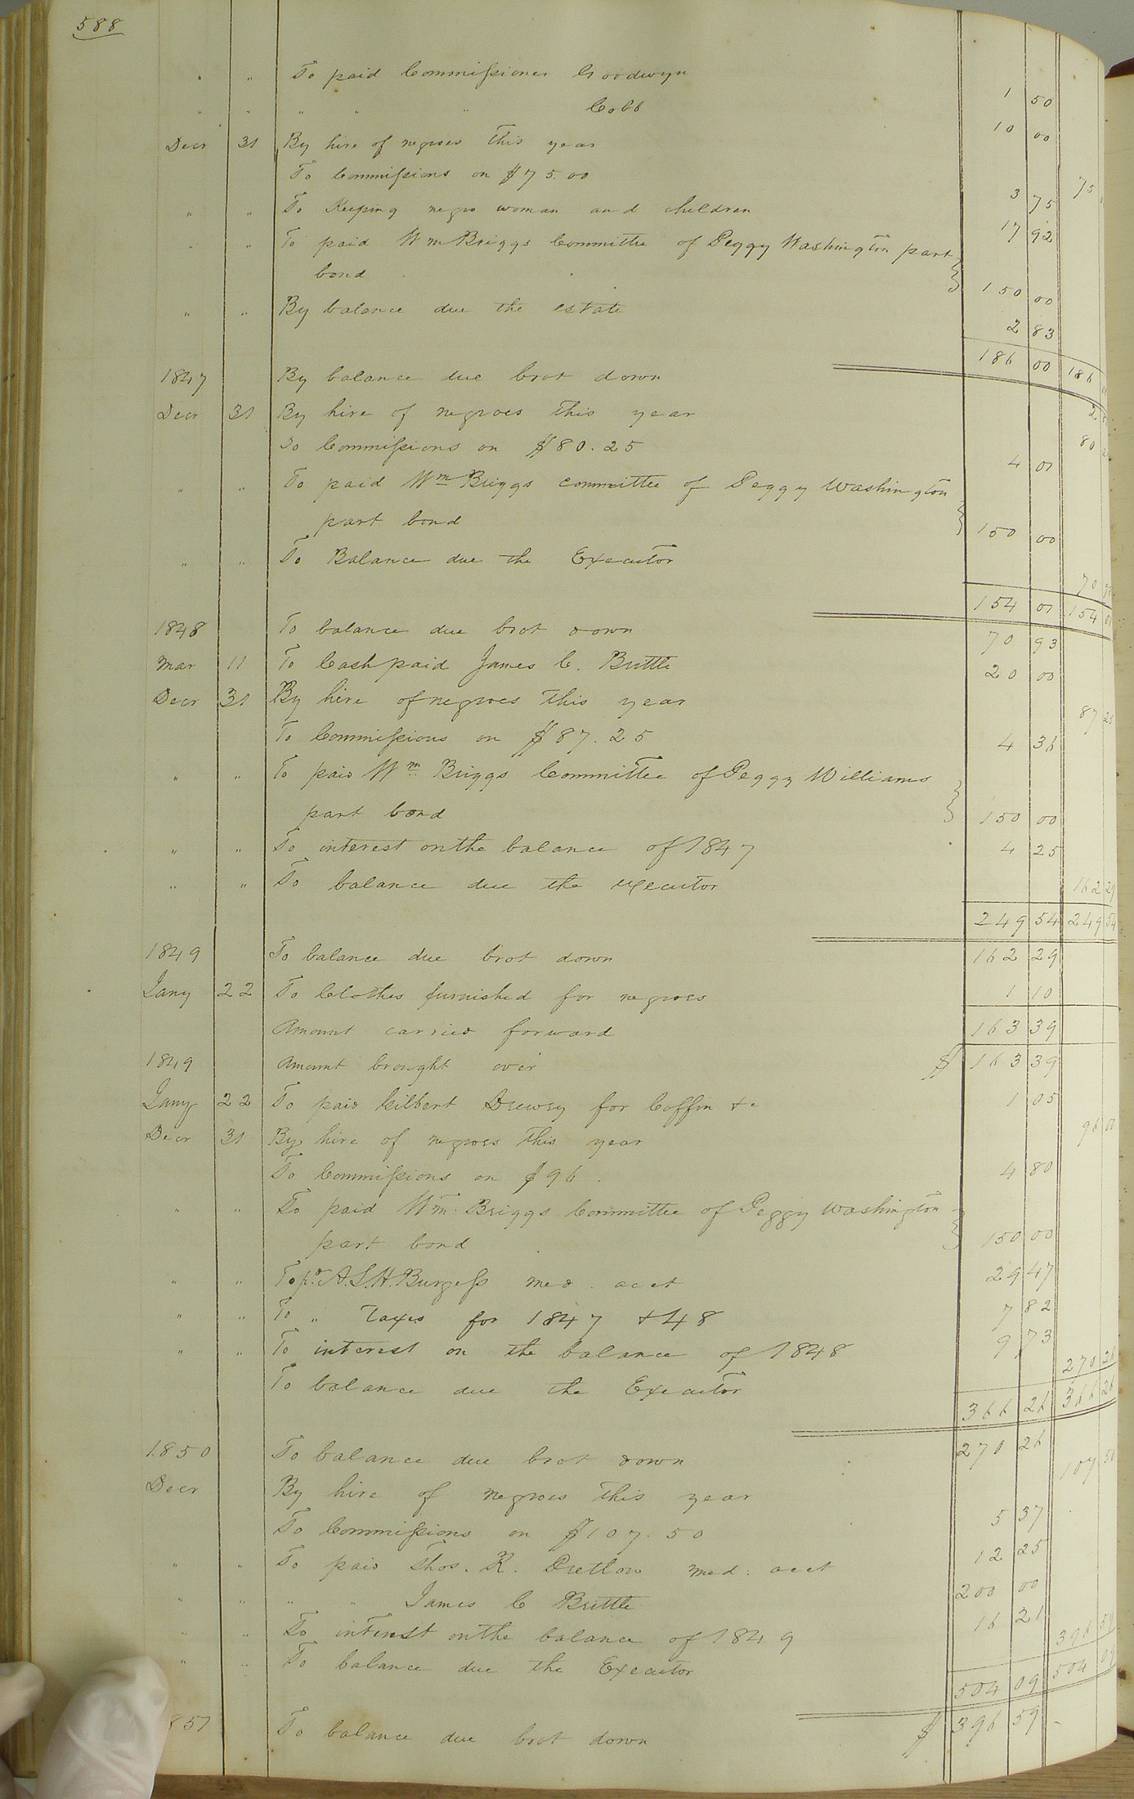 588
" " To paid Commissioner Goodwyn 1 50
" " " " " Cobb 10 00
Decr 31 By hire of negroes this year 75
To Commissions on $75.00 3 75
" " To Keeping negro woman and children 17 92
" " To paid Wm Briggs Committee of Peggy Washington part
bond 150 00
" " By balance due the estate 2 83
186 00 186
1847 By balance due brot down 2
Decr 31 By hire of negroes this year 80
To Commissions on $80.25 4 01
" " To paid Wm Briggs committee of Peggy Washington
part bond 150 00
" " To Balance due the Executor 70
154 01 154 01
1848 To balance due brot down 70 93
Mar 11 To Cash paid James C. Brittle 20 00
Decr 31 By hire of negroes this year 87 25
To Commissions on $87.25 4 36
" " To paid Wm Briggs Committee of Peggy Williams
part bond 150 00
" " To interest on the balance of 1847 4 25
" " To balance due the executor 162 29
249 54 249 54
1849 To balance due brot down 162 29
Jany 22 To Clothes furnished for negroes 1 10
Amount carried forward 163 39
1849 Amount brought over $ 163 39
Jany 22 To paid Kilbert Drewry for Coffin &c 1 05
Decr 31 By hire of negroes this year 96 00
To Commissions on $96. 4 80
" " To paid Wm Briggs Committee of Peggy Washington
part bond 150 00
" " To pd. A.S.H. Burgess med. acct 29 47
" " To " Taxes for 1847 & 48 7 82
" " To interest on the balance of 1848 9 73
To balance due the Executor 270 26
366 26 366 26
1850 To balance due brot down 270 26
Decr By hire of negroes this year 107 50
To Commissions on $107.50 5 37
" " To paid Thos. R. Pretlow med. acct 12 25
" " " " James C Brittle 200 00
" " To interest on the balance of 1849 16 21
" " To balance due the Executor 396 59
504 09 504 09
851 To balance due brot down $ 396 59